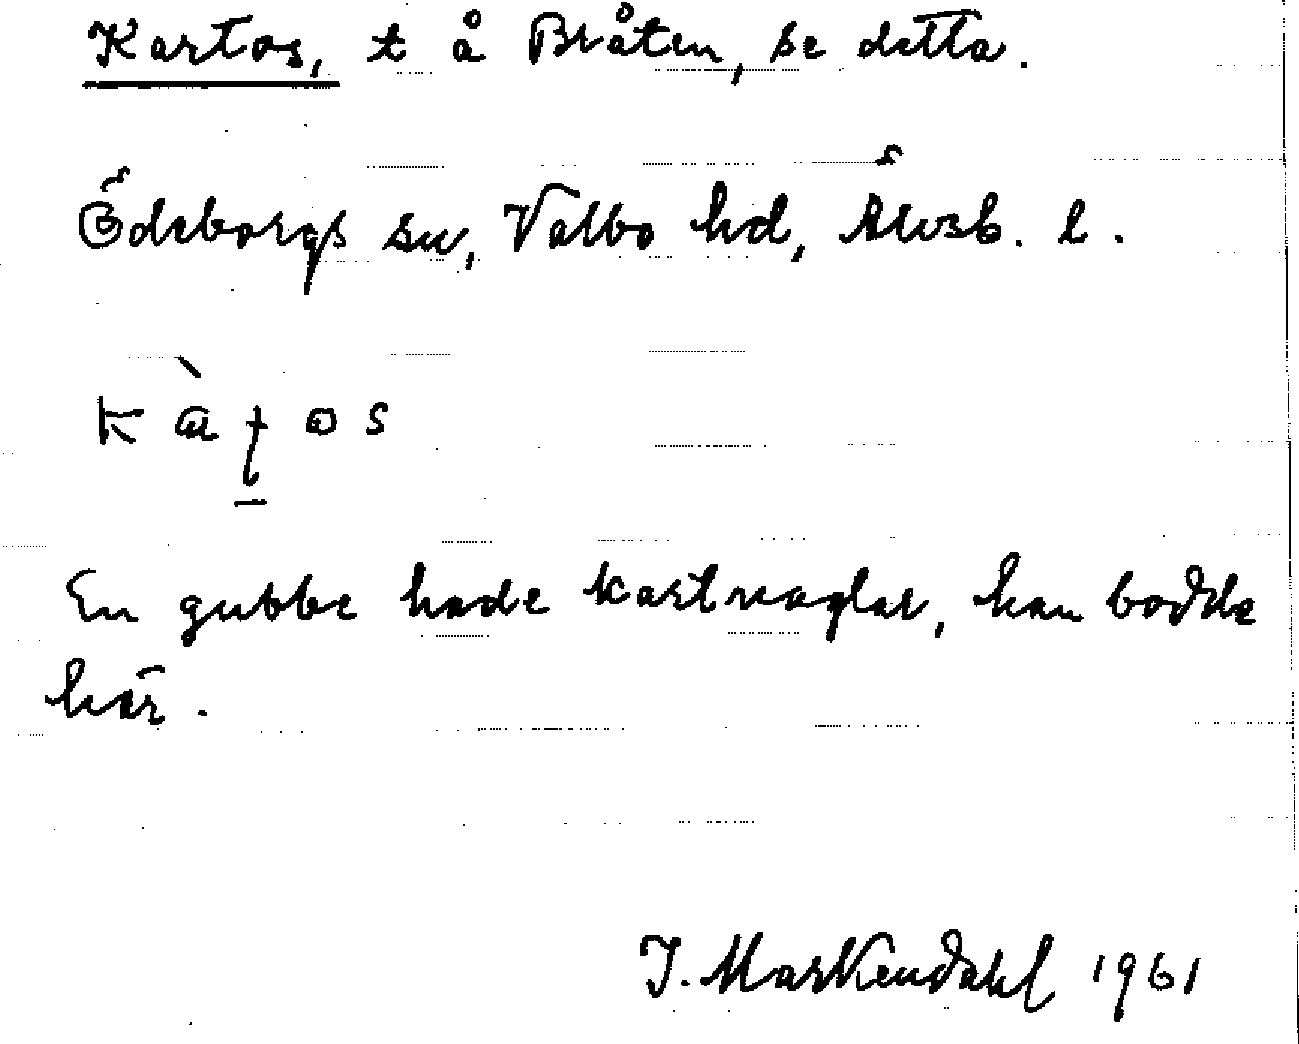 Kartos, t å Bråten, se detta.
Ödeborgs sn, Valbo hd, Älvsb. l.
En gubbe hade kartnaglar, han bodde
här.
J. Markendahl 1961